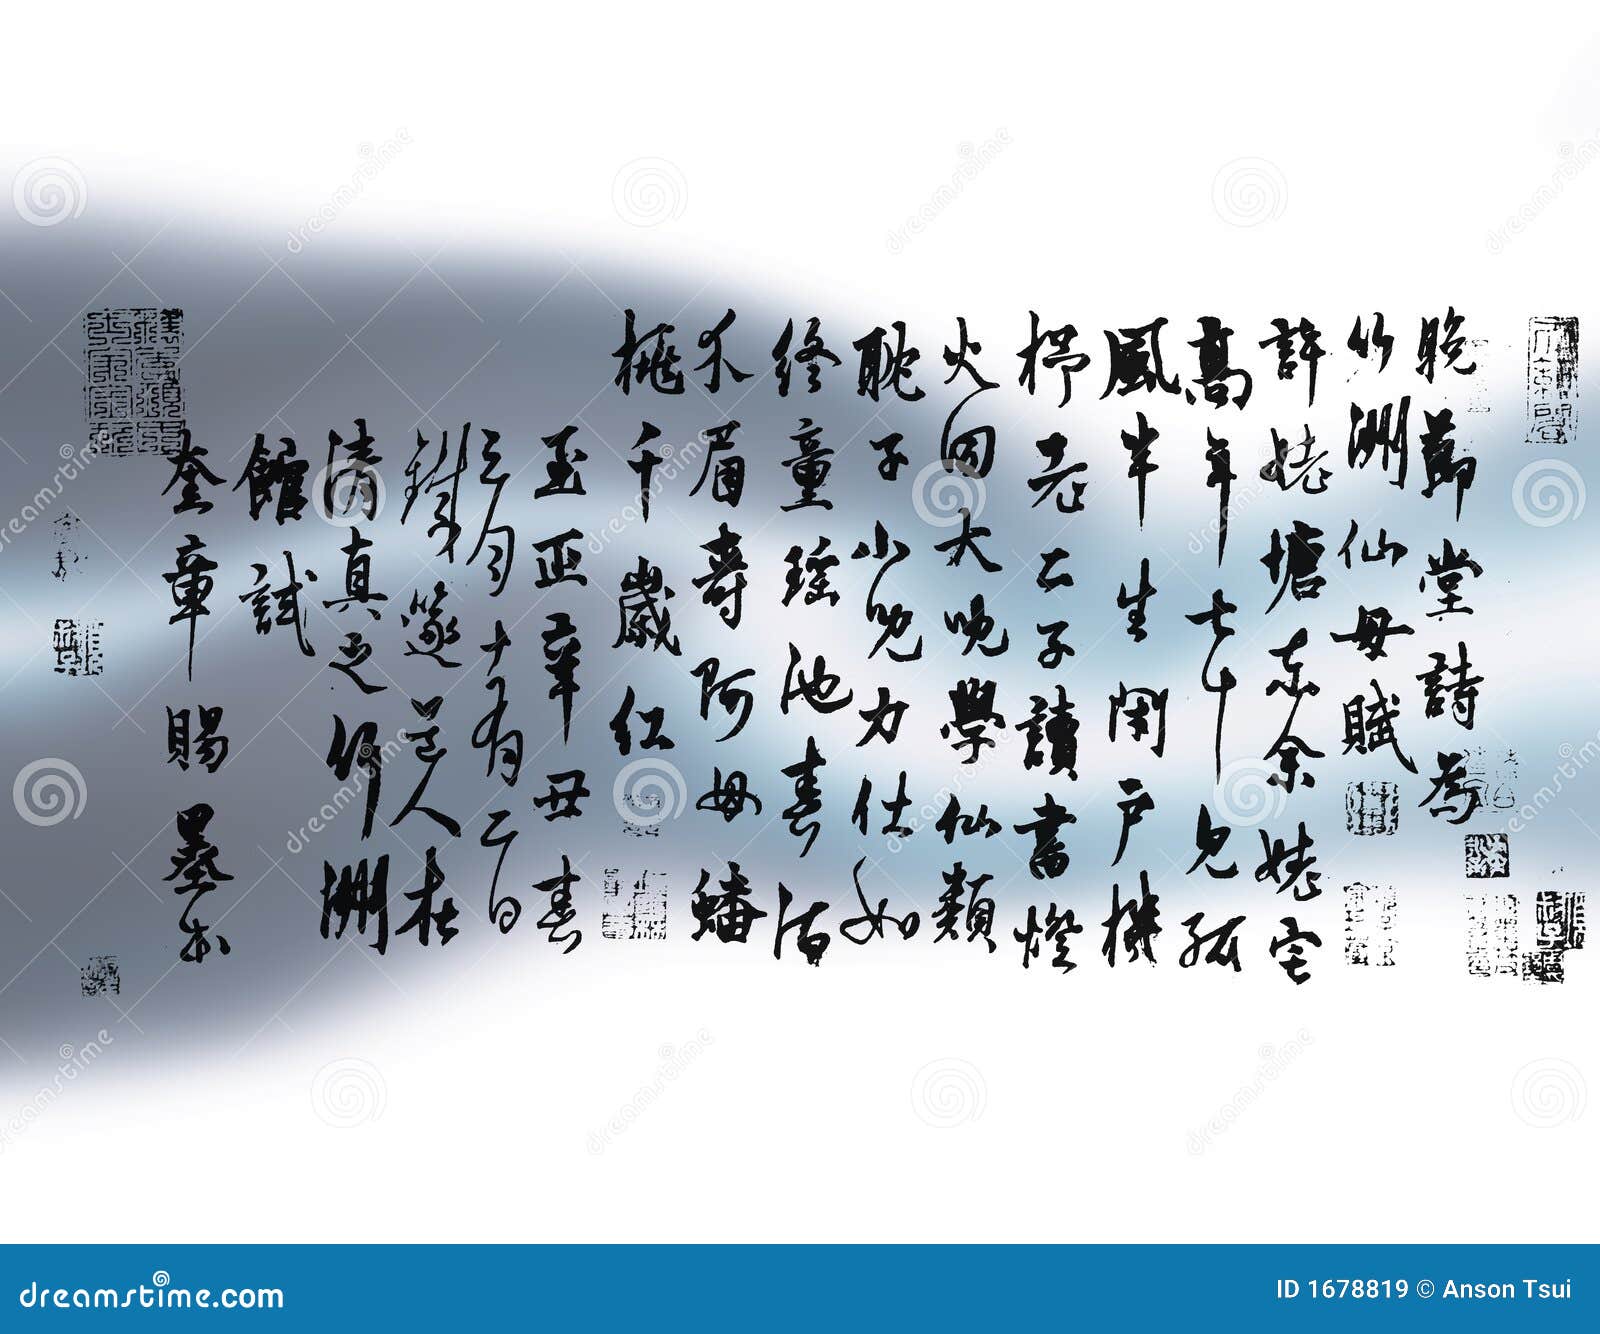 晚節堂詩為
竹洲仙母賦
許姥塘東余姥宅
高年七十兒孤
風半生閉戶機
杼老二子讀書燈
火囙大晚學仙類
耽子小兒力仕如
終童瑤池春酒
介眉壽阿母蟠
桃千歲紅
至正辛丑春
三月十有二日
鐵篴道人在
清真之竹洲
館試
奎章賜墨書
dreamstime.com
ID 1678819 © Anson Tsui